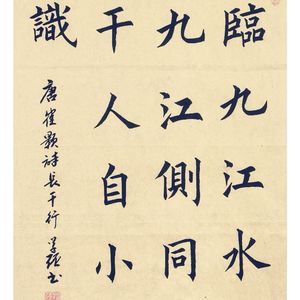 臨九江水
九江側同
干人自小
識
唐崔顥詩長干行 书